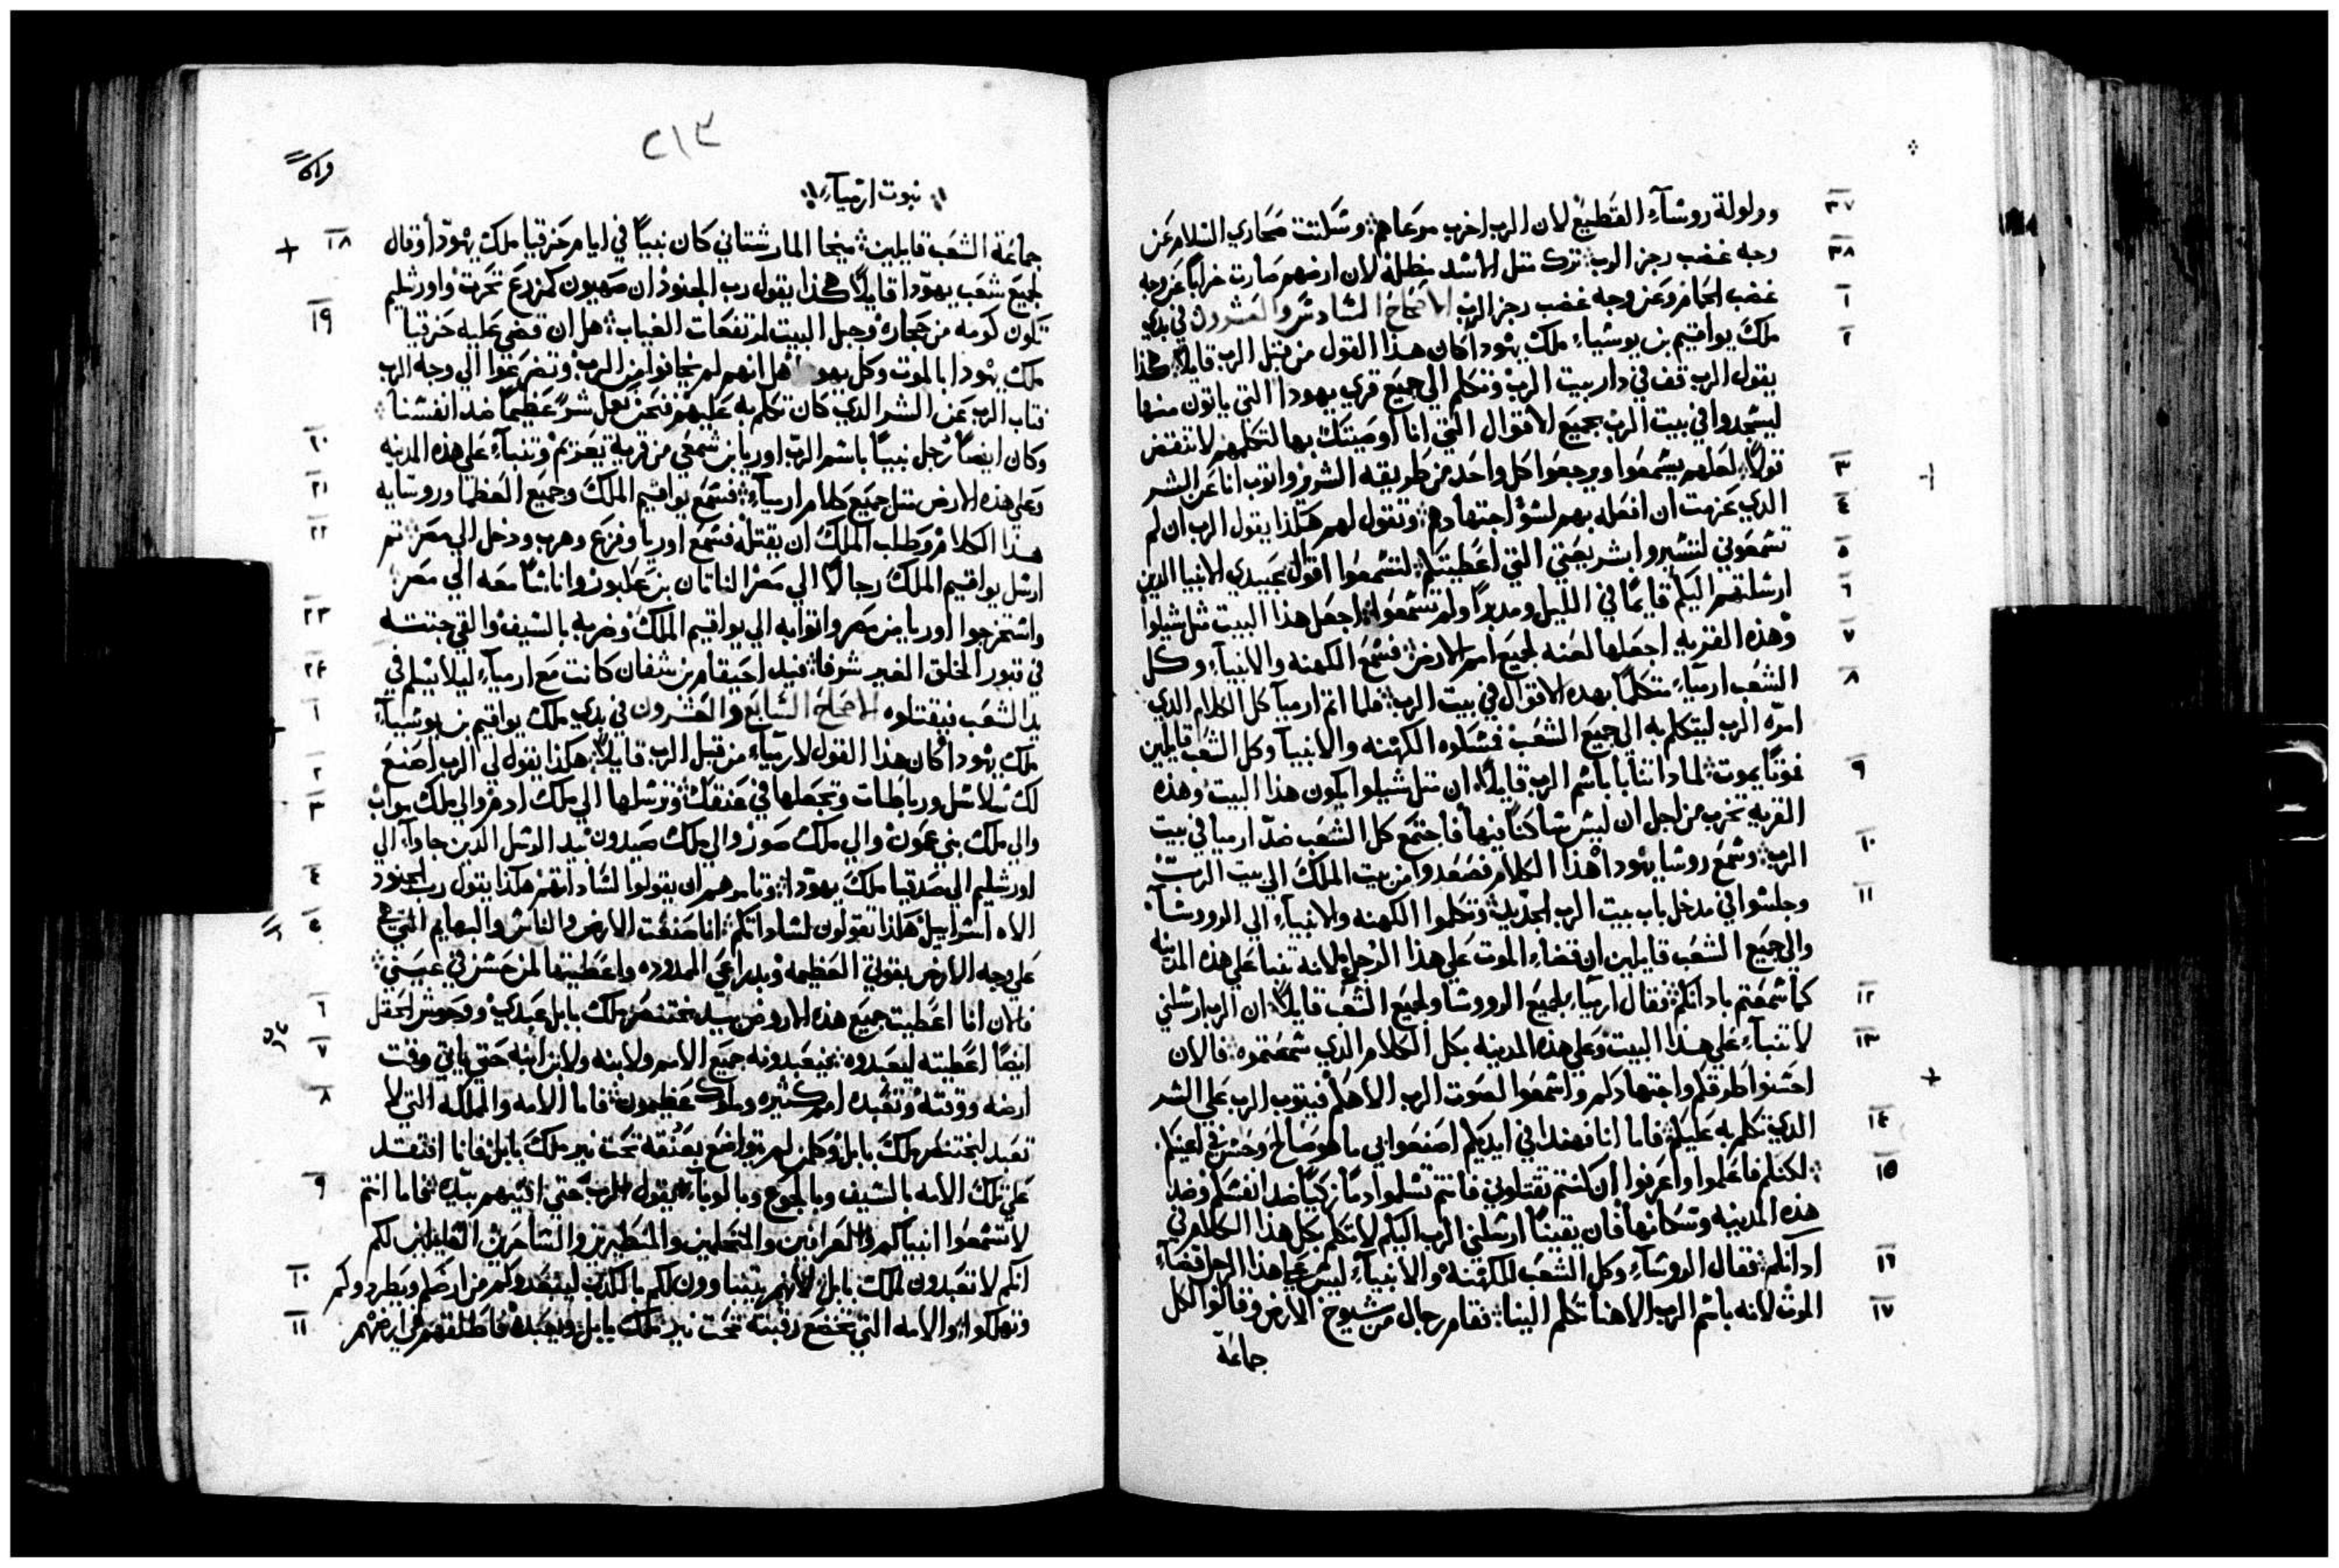 وولولة روشآء القطيع لان الرب اخرب مرعاهم وسكتت صحاري السلام عن
وجه غضب رجز الرب ترك مثل الاسد مظله لان ارضهم صارت خرابًا عن وجه
غضب الحمام وعن وجه غضب رجز الرب الاصحاح السادس والعشرون في بدي
ملك يواقيم بن يوشياء ملك يهودا كان هذا القول من قبل الرب قايلًا هكذا
يقول الرب قف في دار بيت الرب وتكلم الي جميع قري يهودا التي ياتون منها
ليسجدوا في بيت الرب بجميع الاقوال التي انا اوصيتك بها لتكلمهم لا تنقص
قولًا لعلهم يسمعوا ويرجعوا كل واحد من طريقه الشرير واتوب انا عن الشر
الذي عزمت ان افعله بهم لسؤ اجتهادهم وتقول لهم هكذا يقول الرب ان لم
تسمعوني لتسيروا بشريعتي التي اعطيتكم لتسمعوا اقوال عبيدي الانبيا الذين
ارسلتهم اليكم قايمًا في الليل ومدبرًا ولم تسمعوا اجعل هذا البيت مثل شيلوا
وهذه القريه اجعلها لعنه لجميع امم الارض فسمع الكهنه والانبياء وكل
الشعب ارمياء متكلمًا بهذه الاقوال في بيت الرب فلما اتم ارميا كل الكلام الذي
امره الرب ليتكلم به الي جميع الشعب فمسكوه الكهنه والانبيا وكل الشعب قايلين
موتًا يموت لماذا تنبا باسم الرب قايلًا ان مثل شيلوا يكون هذا البيت وهذه
القريه تخرب من اجل ان ليس ساكنًا فيها فاجتمع كل الشعب ضد ارميا في بيت
الرب وسمع روسا يهودا هذا الكلام فصعدوا من بيت الملك الي بيت الرب
وجلسوا في مدخل باب بيت الرب الجديد وتكلموا الكهنه والانبياء الي الروسآء
والي جميع الشعب قايلين ان قضاء الموت علي هذا الرجل لانه تنبا علي هذه المدينه
كما سمعتم باذانكم فقال ارمياء لجميع الرووسا ولجميع الشعب قايلًا ان الرب ارسلني
لاتنباء علي هذا البيت وعلي هذه المدينه بكل الكلام الذي سمعتموه فالان
احسنوا طرقكم واجتهادكم واسمعوا لصوت الرب الاهكم فيتوب الرب علي الشر
الذي تكلم به عليكم فاما انا فهنذا في ايديكم اصنعوا بي ما هو صالح وحسن في اعينكم
لكنكم فاعلموا واعرفوا ان كنتم تقتلوني فانتم تسلموا دمًا زكيًا ضد انفسكم وضد
هذه المدينه وسكانها فان يقينًا ارسلني الرب اليكم لاتكلم بكل هذا الكلام في
اذانكم فقال الروسآء وكل الشعب للكهنه والانبياء ليس علي هذا الرجل قضاء
الموت لانه باسم الرب الاهنا تكلم الينا فقام رجال من شيوخ الارض وقالوا لكل
جماعة
٢١٣
نبوت ارمياء
جماعة الشعب قايلين ميخا المارستاني كان نبيًا في ايام حزقيا ملك يهودا وقال
لجميع شعب يهودا قايلًا هكذا يقول رب الجنود ان صهيون كمزرع تحرث واورشليم
تكون كومه من حجاره وجبل البيت لمرتفعات الغياب هل ان قضي عليه حزقيا
ملك يهودا بالموت وكل يهودا هل انهم لم يخافوا من الرب وتضرعوا الي وجه الرب
فتاب الرب عن الشر الذي كان تكلم به عليهم فنحن نعمل شرًا عظيمًا ضد انفسنا
وكان ايضًا رجل نبيًا باسم الرب اوريا بن شمعي من قرية يعريم وتنباء علي هذه المدينه
وعلي هذه الارض مثل جميع كلام ارمياء فسمع يواقيم الملك وجميع العظما وروسايه
هذا الكلام وطلب الملك ان يقتله فسمع اوريا وفزع وهرب ودخل الي مصر ثم
ارسل يواقيم الملك رجالًا الي مصر الناتان بن عكبور واناسًا معه الي مصر
واستخرجوا اوريا من مصر واتوا به الي يواقيم الملك وضربه بالسيف والقي جثته
في قبور الخلق الغير شرفا فيد احيقام بن شفان كانت مع ارمياء ليلا يسلم في
يد الشعب فيقتلوه الاصحاح السابع والعشرون في بدي ملك يواقيم بن يوشياء
ملك يهودا كان هذا القول لارمياء من قبل الرب قايلًا هكذا يقول لي الرب اصنع
لك سلاسل ورباطات وتجعلها في عنقك وترسلها الي ملك ادوم والي ملك مواب
والي ملك بني عمون والي ملك صور والي ملك صيدون بيد الرسل الذين جاوا الي
اورشليم الي صدقيا ملك يهودا وتامرهم ان يقولوا لساداتهم هكذا يقول رب الجنود
الاه اسراييل هكذا تقولون لساداتكم انا صنعت الارض والناس والبهايم التي هي
علي وجه الارض بقوتي العظيمه وبدراعي الممدوده واعطيتها لمن حسن في عيني
فالان انا اعطيت جميع هذه الاروض بيد بختنصر ملك بابل عبدي ووحوش الحقل
ايضًا اعطيته ليعبدوه فيعبدونه جميع الامم ولابنه ولابن ابنه حتي ياتي وقت
ارضه ووقته وتعبده امم كثيره وملوك عظيمون فاما الامه والمملكه التي لا
تعبد لبختنصر ملك بابل وكلمن لم يواضع بعنقه تحت نير ملك بابل فانا افتقد
علي تلك الامه بالسيف وبالجوع وبالوباء يقول الرب حتي افنيهم بيده فاما انتم
لا تسمعوا انبياكم والعرافين والمتحلمين والمتطيرين والساحرين القايلين لكم
انكم لا تعبدون لملك بابل لانهم يتنباوون لكم بالكذب ليبعدوكم من ارضكم ويطردوكم
وتهلكوا والامه التي تخضع رقبته تحت نير ملك بابل ويعبده فاطلقهم في ارضهم